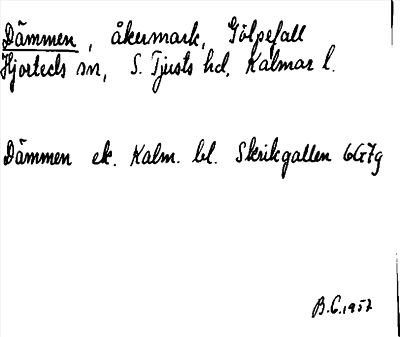 Dämmen, åkermark, Gölpefall
Hjorteds sn, S. Tjusts hd, Kalmar l.
Dämmen ek. Kalm. bl. Skrikgallen 6G7g
B.C. 1957